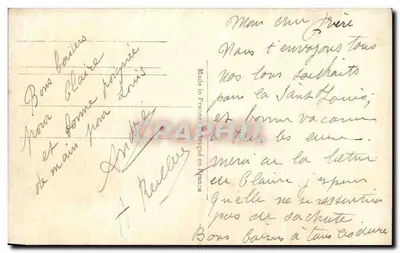 Bons baisers
pour Claire
et bonne poignée
de main pour Louis
André
Made in France
en France
Mon cher frère
Nous t'envoyons tous
nos bons souhaits
pour la Saint Louis,
et bonne vacances
a la lettre
de Claire, j'espère
qu'elle ne se ressentira
pas de sa chute
Bons baisers à tous